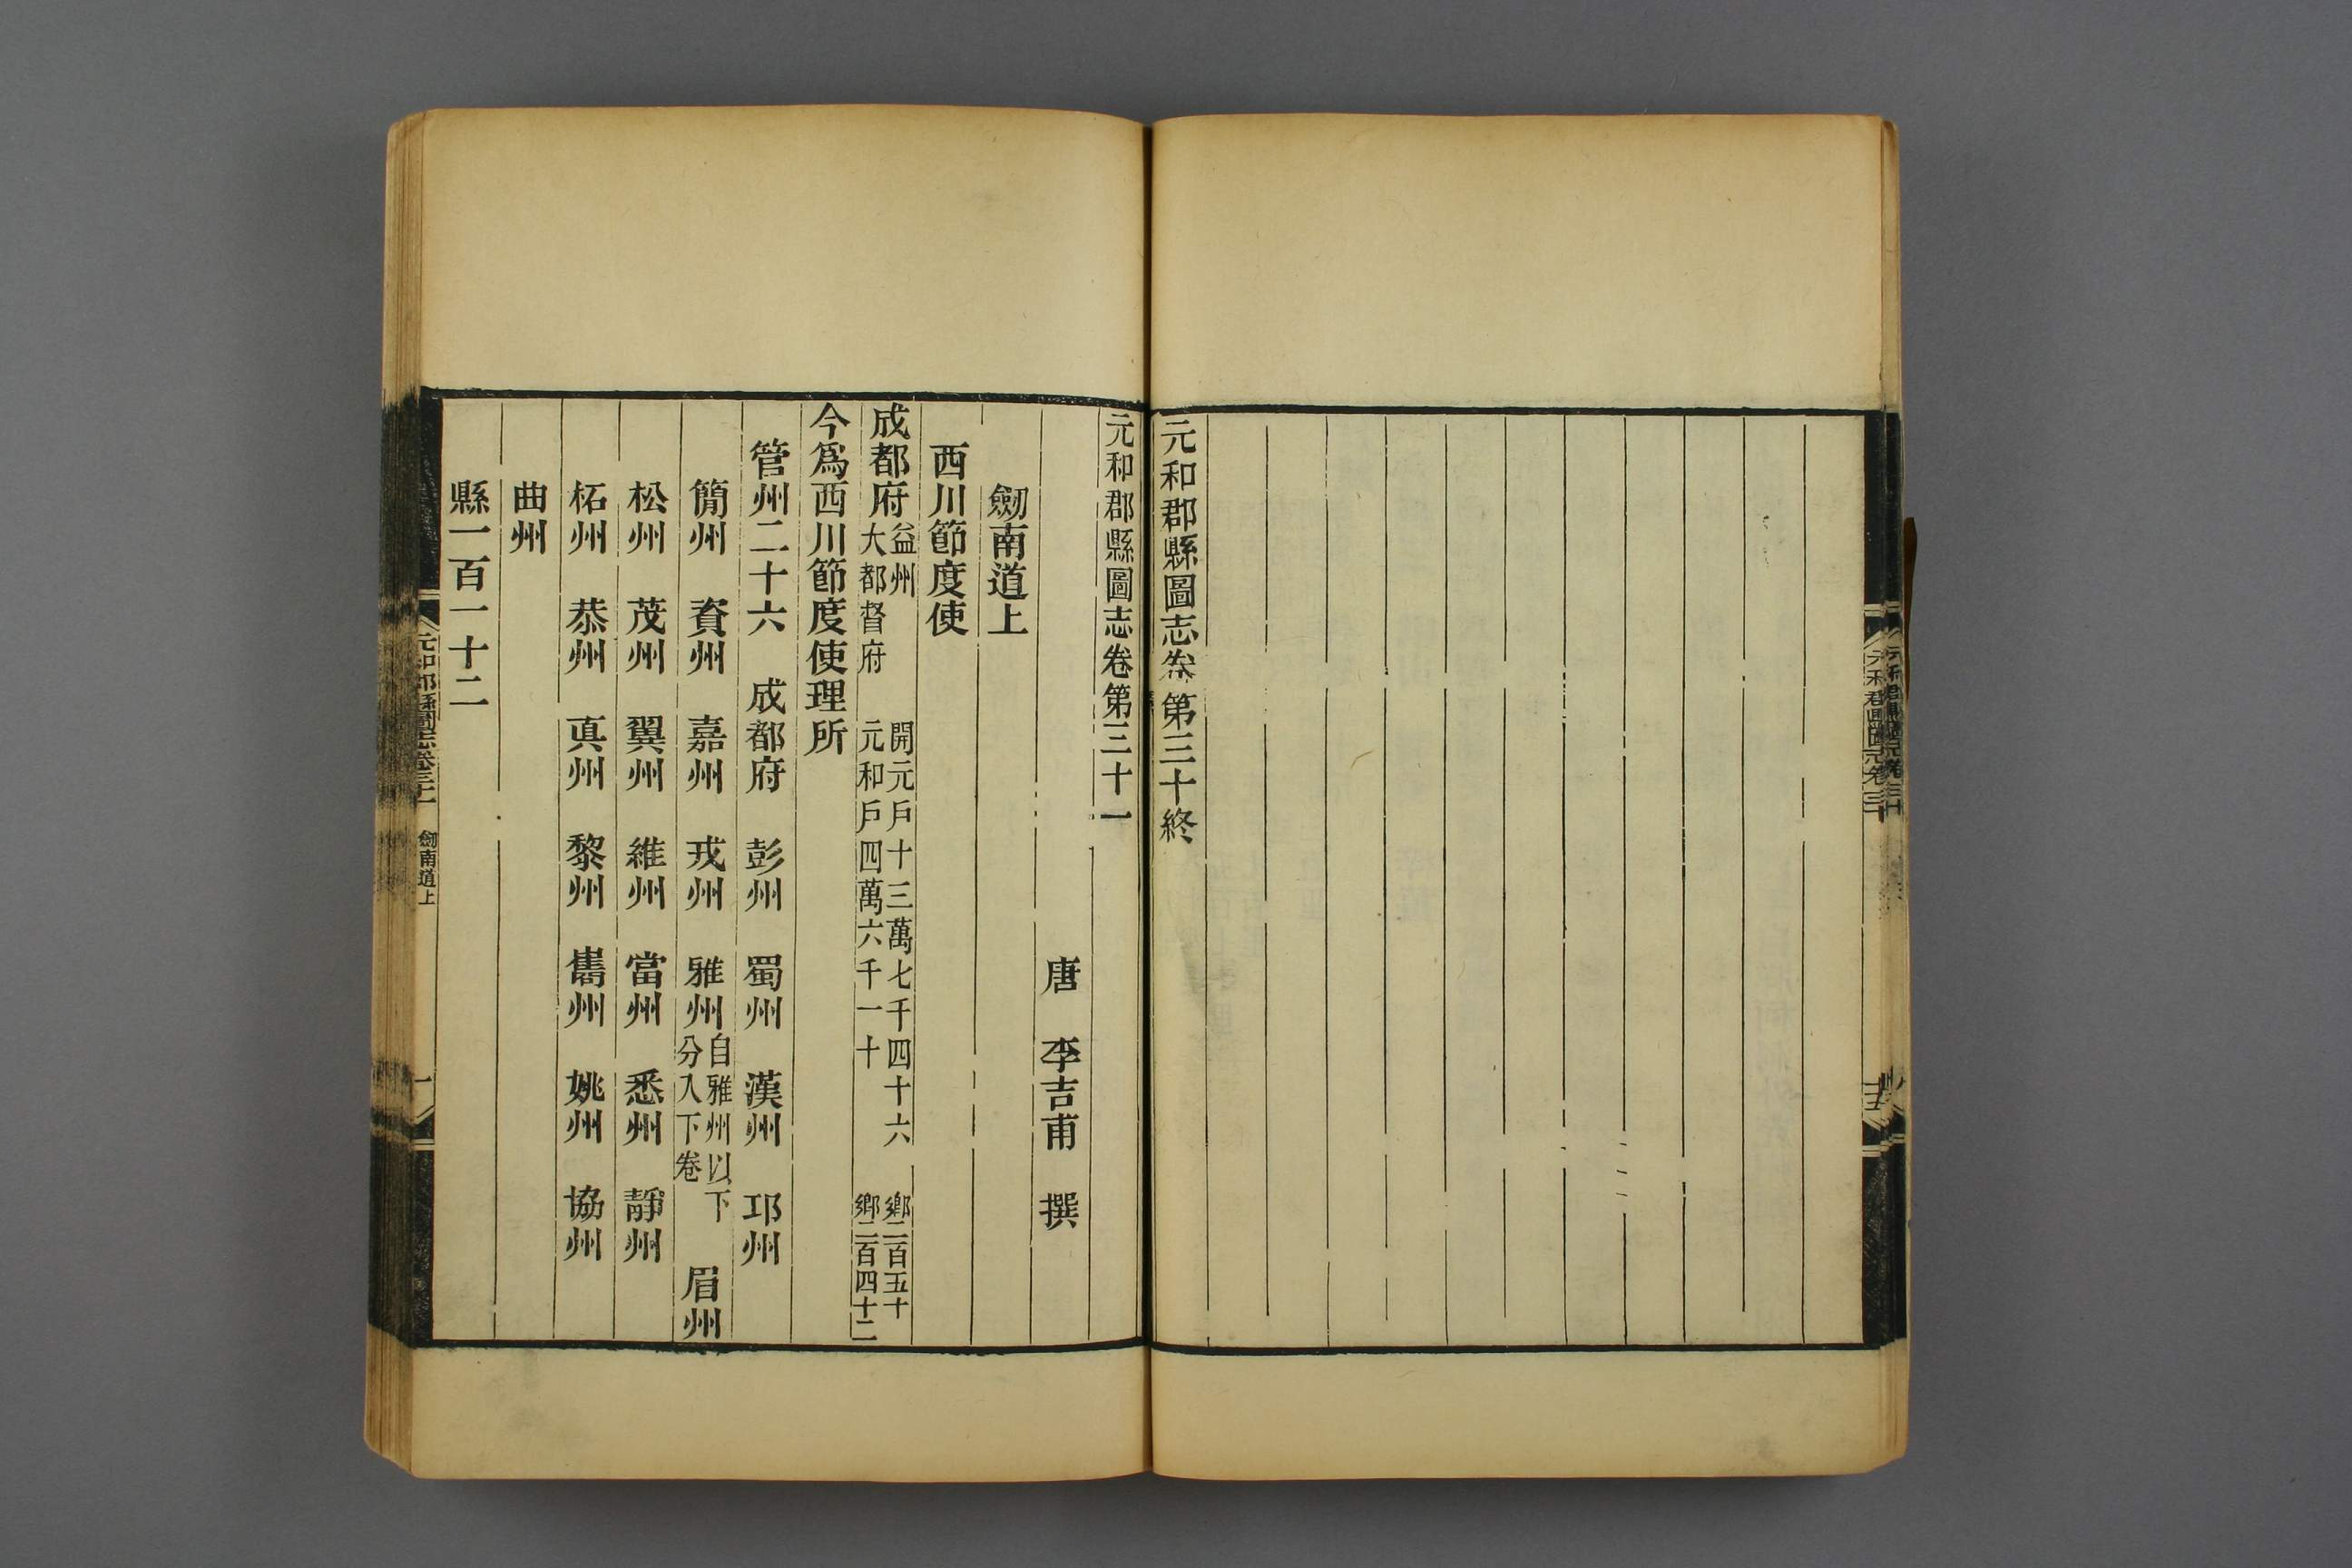 元和郡縣圖志卷第三十終
元和郡縣圖志卷第三十一
唐 李吉甫 撰
劒南道上
西川節度使
成都府 益州 大都督府 開元戶十三萬七千四十六 鄉二百五十 元和戶四萬六千一十 鄉二百四十二
今爲西川節度使理所
管州二十六 成都府 彭州 蜀州 漢州 邛州
簡州 資州 嘉州 戎州 雅州 自雅州以下分入下卷 眉州
松州 茂州 翼州 維州 當州 悉州 靜州
柘州 恭州 真州 黎州 巂州 姚州 協州
曲州
縣一百一十二
元和郡縣圖志卷三十一 劒南道上 一